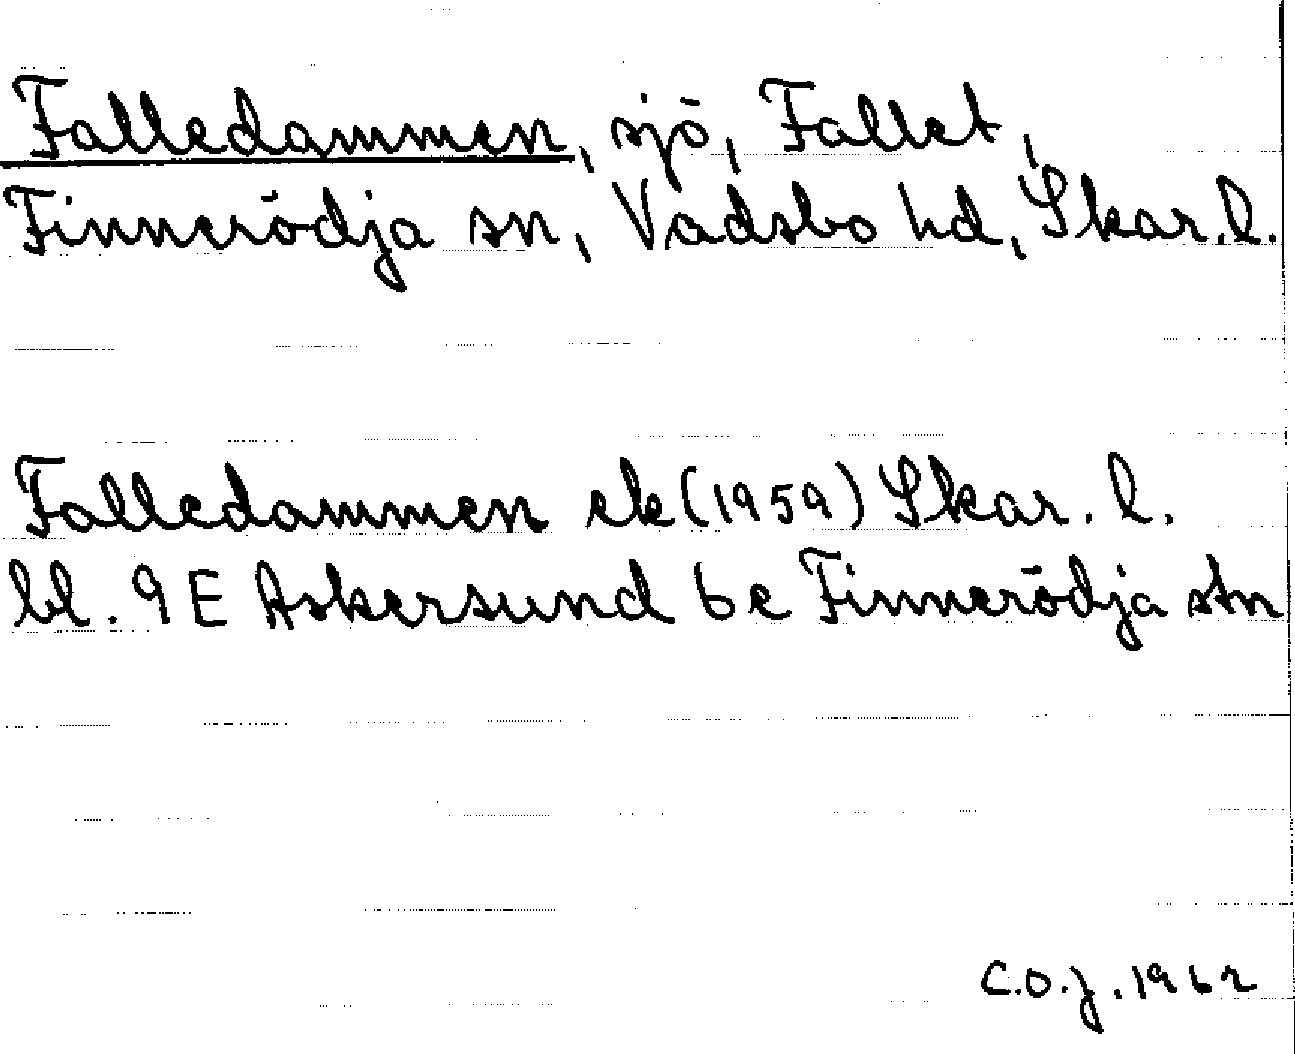 Falledammen, sjö, Fallet,
Finnerödja sn, Vadsbo hd, Skar.l.
Falledammen ek (1959) Skar. l.
bl. 9 E Askersund 6 c Finnerödja stn
C.O.J. 1962